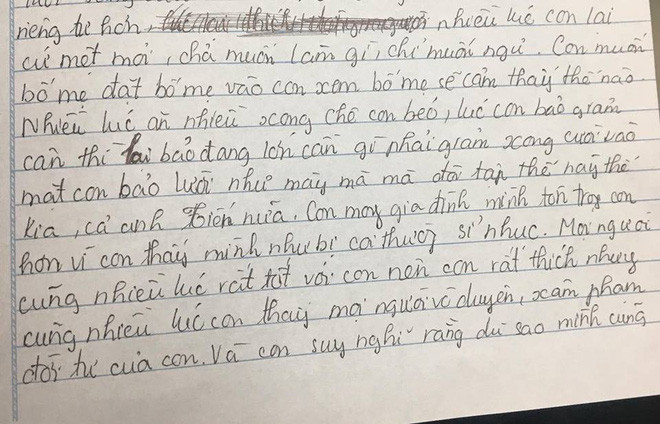 riêng tư hơn, nhiều lúc con lại
cứ mệt mỏi, chả muốn làm gì, chỉ muốn ngủ. Con muốn
bố mẹ đặt bố mẹ vào con xem bố mẹ sẽ cảm thấy thế nào.
Nhiều lúc ăn nhiều xong chê con béo, lúc con bảo giảm
cân thì lại bảo đang lớn cần gì phải giảm xong cười vào
mặt con bảo lười như mày mà mà đòi tập thế này thế
kia, cả anh nữa. Con mong gia đình mình tôn trọg con
hơn vì con thấy mình như bị coi thườg sỉ nhục. Mọi người
cũng nhiều lúc rất tốt với con nên con rất thích nhưng
cũng nhiều lúc con thấy mọi người vô duyên, xâm phạm
đời tư của con. Và con suy nghĩ rằng dù sao mình cũng